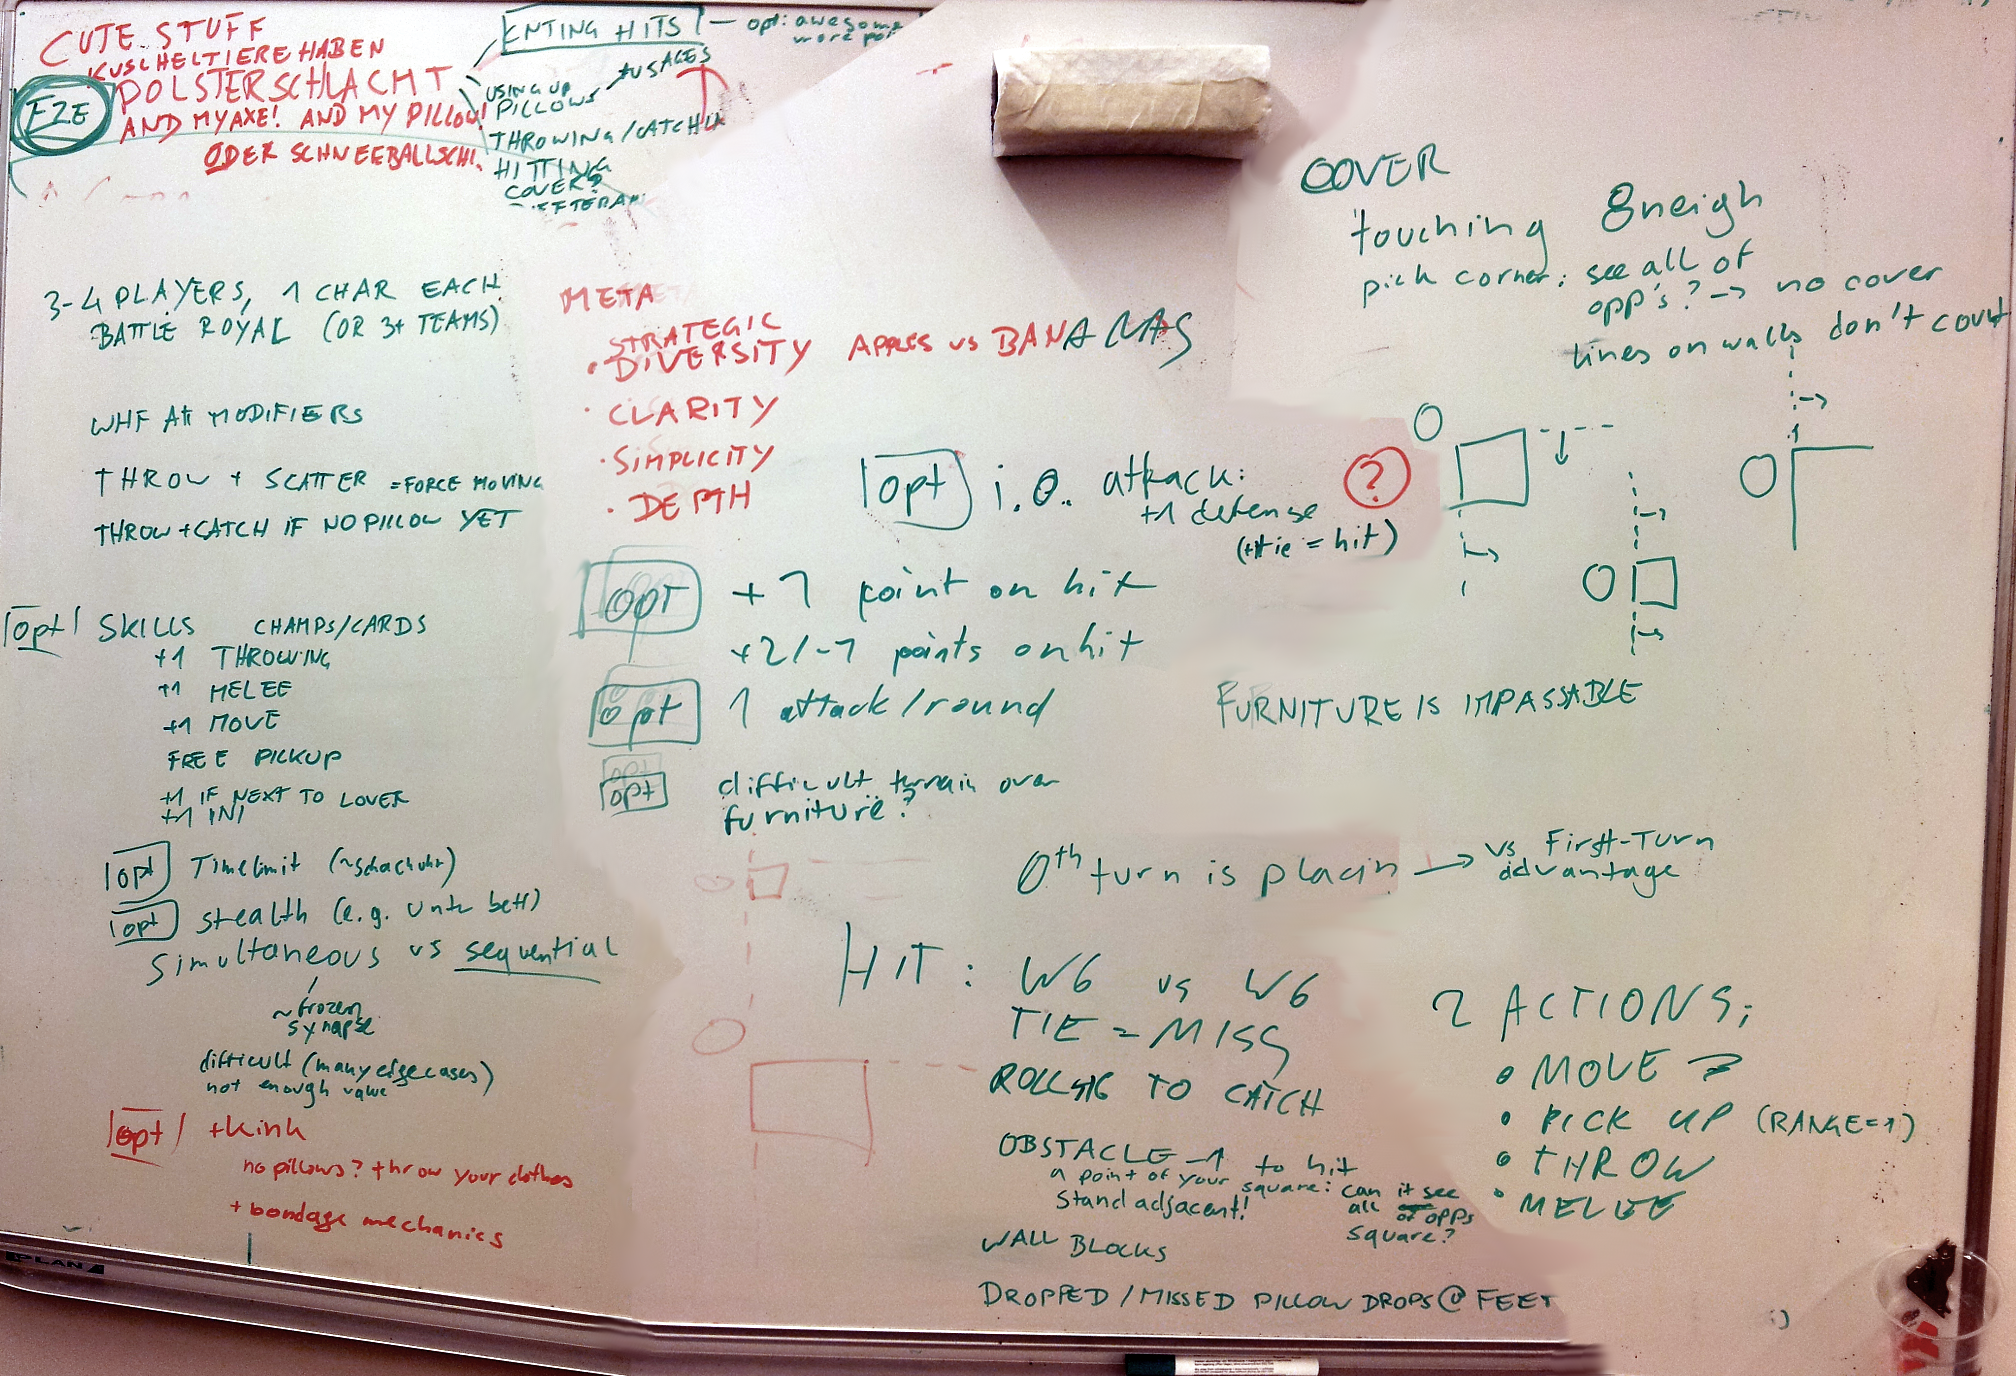 CUTE STUFF
KUSCHELTIERE HABEN
POLSTERSCHLACHT
AND MY AXE! AND MY PILLOW!
ODER SCHNEEBALLSCHL
FZE
ENTING HITS — opt: awesome
more poi
USING UP PILLOWS
+USAGES
THROWING/CATCHIN
HITTING
COVER?
3-4 PLAYERS, 1 CHAR EACH
BATTLE ROYAL (OR 3+ TEAMS)
WHF Att MODIFIERS
THROW + SCATTER = FORCE MOVING
THROW + CATCH IF NO PILLOW YET
opt SKILLS CHAMPS/CARDS
+1 THROWING
+1 MELEE
+1 MOVE
FREE PICKUP
+1 IF NEXT TO LOVER
+1 INI
opt Timelimit (~schachuhr)
opt stealth (e.g. unter bett)
Simultaneous vs sequential
~frozen
synapse
difficult (many edgecases)
not enough value
opt +kink
no pillows? throw your clothes
+ bondage mechanics
META
• STRATEGIC
DIVERSITY APPLES vs BANANAS
• CLARITY
• SIMPLICITY
• DEPTH
opt i.o. attack:
+1 defense
(+tie = hit)
?
opt +1 point on hit
+2/-1 points on hit
opt 1 attack/round
opt difficult terrain over
furniture?
COVER
touching 8neigh
pick corner: see all of
opp's? → no cover
lines on walls don't count
FURNITURE IS IMPASSABLE
0th turn is placin → vs First-Turn
advantage
HIT: W6 vs W6
TIE = MISS
ROLL 46 TO CATCH
OBSTACLE -1 to hit
a point of your square: can it see
all of opps
square?
Stand adjacent!
WALL BLOCKS
DROPPED/MISSED PILLOW DROPS @ FEET
2 ACTIONS:
• MOVE
• PICK UP (RANGE=1)
• THROW
• MELEE
PLAN